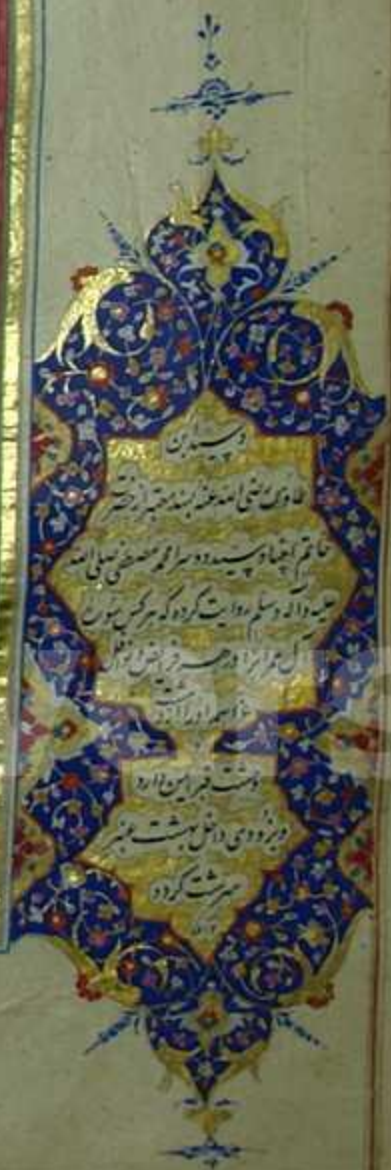 و سید بن
طاوس رضی الله عنه بسند معتبر از حضرت
خاتم انبیا و سید دو سرا محمد مصطفی صلی الله
علیه و آله و سلم روایت کرده که هر کس سوره
آل عمران را در هر فرایض و نوافل
وحشت قبر ایمن دارد
وی داخل بهشت عنبر
سرشت گردد